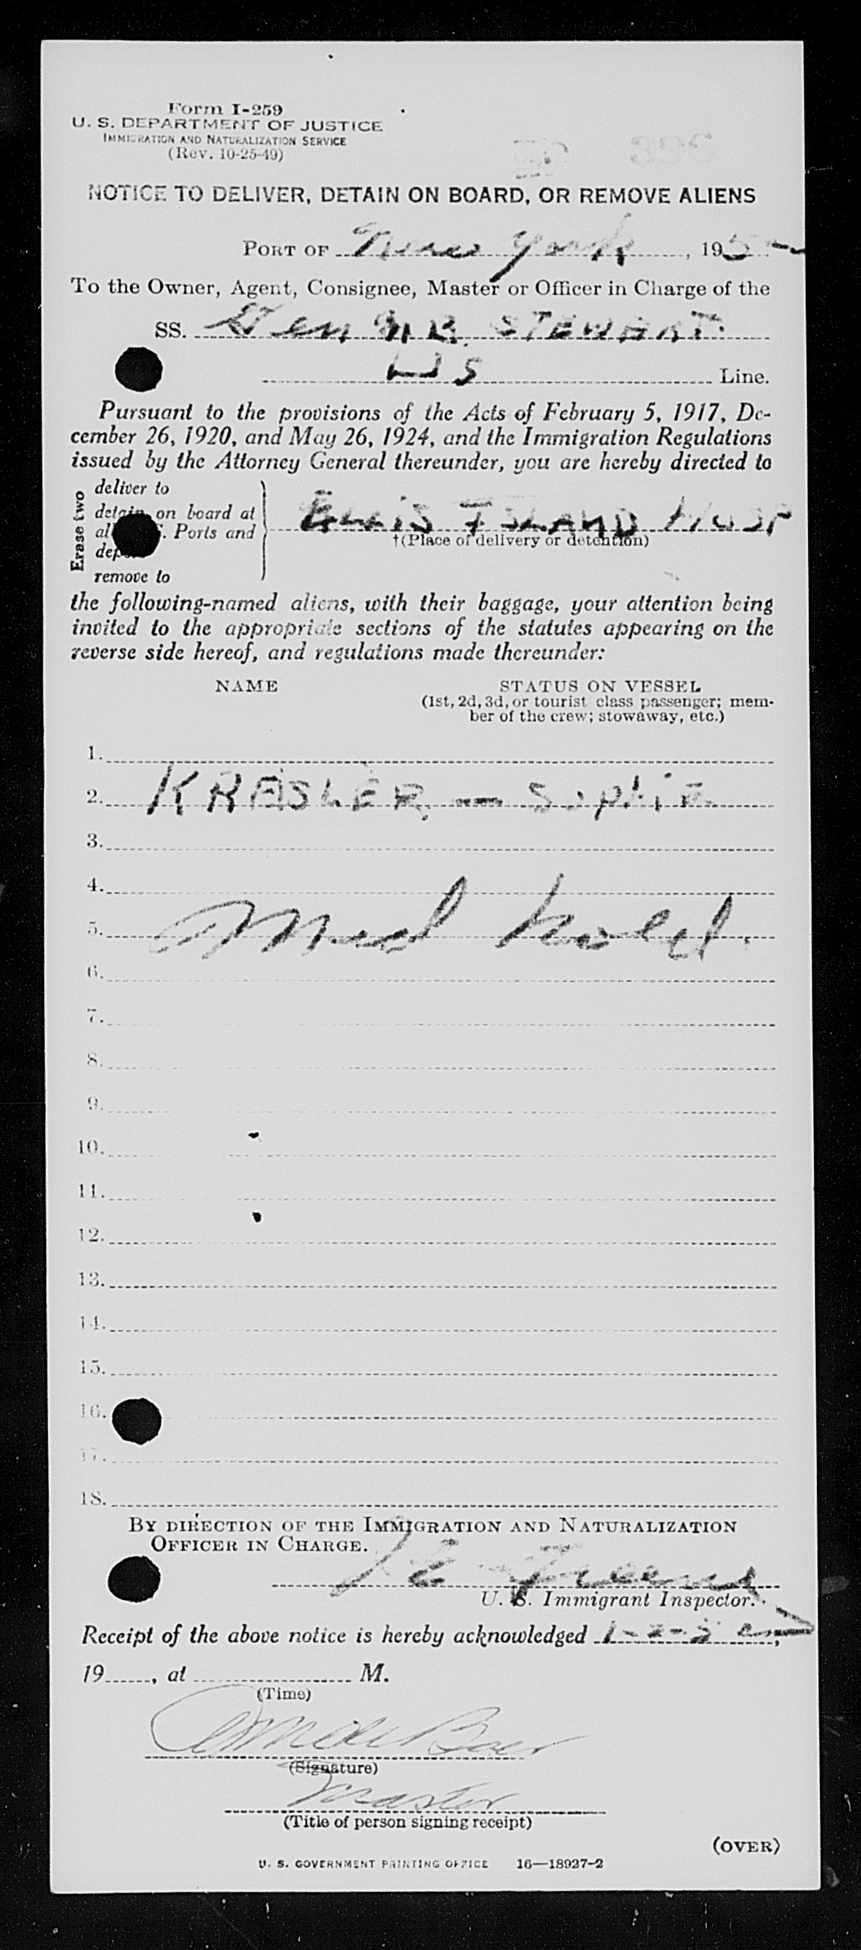 Form I-259
U. S. DEPARTMENT OF JUSTICE
IMMIGRATION AND NATURALIZATION SERVICE
(Rev. 10-25-49)
NOTICE TO DELIVER, DETAIN ON BOARD, OR REMOVE ALIENS
PORT OF New York, 195
To the Owner, Agent, Consignee, Master or Officer in Charge of the
SS. Gen M B. STEWART
US Line.
Pursuant to the provisions of the Acts of February 5, 1917, De-
cember 26, 1920, and May 26, 1924, and the Immigration Regulations
issued by the Attorney General thereunder, you are hereby directed to
Erase two
deliver to
detain on board at
Ports and
remove to
ELLIS ISLAND HOSP
†(Place of delivery or detention)
the following-named aliens, with their baggage, your attention being
invited to the appropriate sections of the statutes appearing on the
reverse side hereof, and regulations made thereunder:
NAME STATUS ON VESSEL
(1st, 2d, 3d, or tourist class passenger; mem-
ber of the crew; stowaway, etc.)
1.
2. KRASLER — SOPHIE
3.
4.
5. Med hold.
6.
7.
8.
9.
10.
11.
12.
13.
14.
15.
16.
17.
18.
BY DIRECTION OF THE IMMIGRATION AND NATURALIZATION
OFFICER IN CHARGE.
Greene
U. S. Immigrant Inspector.
Receipt of the above notice is hereby acknowledged
19, at M.
(Time)
(Signature)
Master
(Title of person signing receipt)
(OVER)
U. S. GOVERNMENT PRINTING OFFICE 16—18927-2